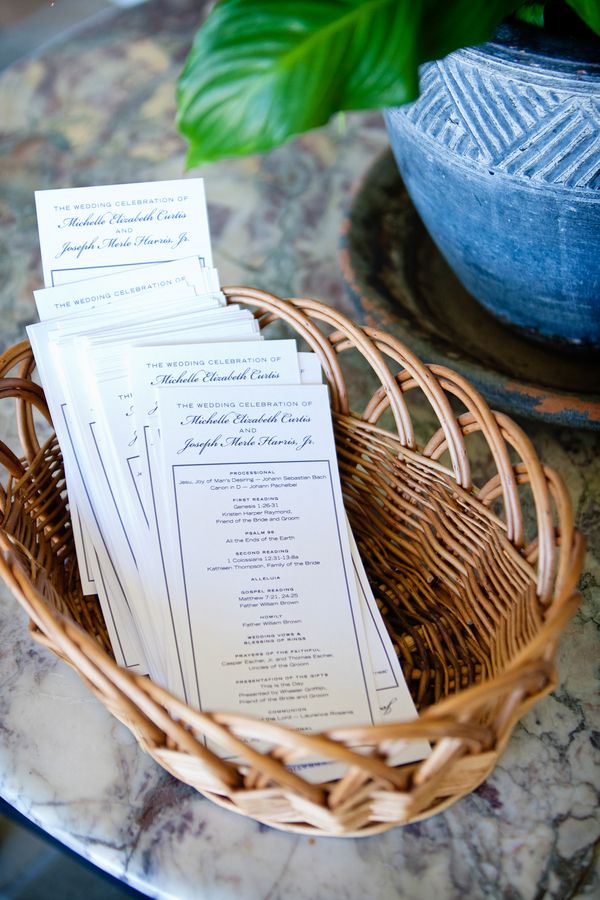 THE WEDDING CELEBRATION OF
Michelle Elizabeth Curtis
AND
Joseph Merle Harris, Jr.
THE WEDDING CELEBRATION OF
THE WEDDING CELEBRATION OF
Michelle Elizabeth Curtis
THE WEDDING CELEBRATION OF
Michelle Elizabeth Curtis
AND
Joseph Merle Harris, Jr.
PROCESSIONAL
Jesu, Joy of Man's Desiring — Johann Sebastian Bach
Canon in D — Johann Pachelbel
FIRST READING
Genesis 1:26-31
Kristen Harper Raymond,
Friend of the Bride and Groom
PSALM 98
All the Ends of the Earth
SECOND READING
1 Colossians 12:31-13:8a
Kathleen Thompson, Family of the Bride
ALLELUIA
GOSPEL READING
Matthew 7:21, 24-25
Father William Brown
HOMILY
Father William Brown
WEDDING VOWS &
BLESSING OF RINGS
PRAYERS OF THE FAITHFUL
Casper Escher, Jr. and Thomas Escher,
Uncles of the Groom
PRESENTATION OF THE GIFTS
This is the Day
Presented by Wheeler Griffith,
Friend of the Bride and Groom
COMMUNION
of the Lord — Laurence Rosania